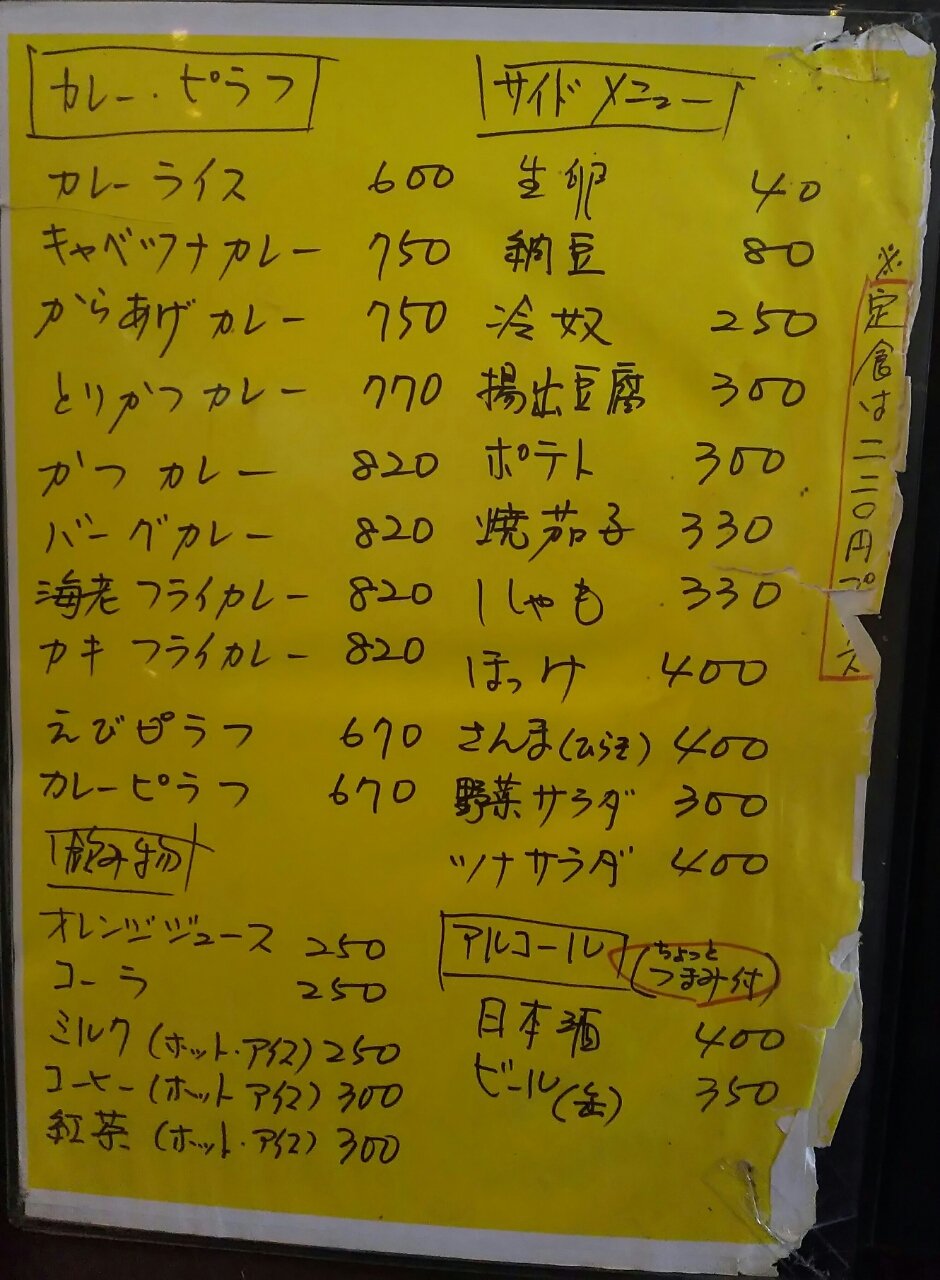 カレー・ピラフ
カレーライス 600
キャベツナカレー 750
からあげカレー 750
とりかつカレー 770
かつカレー 820
バーグカレー 820
海老フライカレー 820
カキフライカレー 820
えびピラフ 670
カレーピラフ 670
飲み物
オレンジジュース 250
コーラ 250
ミルク(ホット・アイス) 250
コーヒー(ホット アイス) 300
紅茶(ホット・アイス) 300
サイドメニュー
生卵 40
納豆 80
冷奴 250
揚出豆腐 300
ポテト 300
焼茄子 330
ししゃも 330
ほっけ 400
さんま(ひらき) 400
野菜サラダ 300
ツナサラダ 400
アルコール
(ちょっと
つまみ付)
日本酒 400
ビール(缶) 350
※定食は二二〇円プ ス